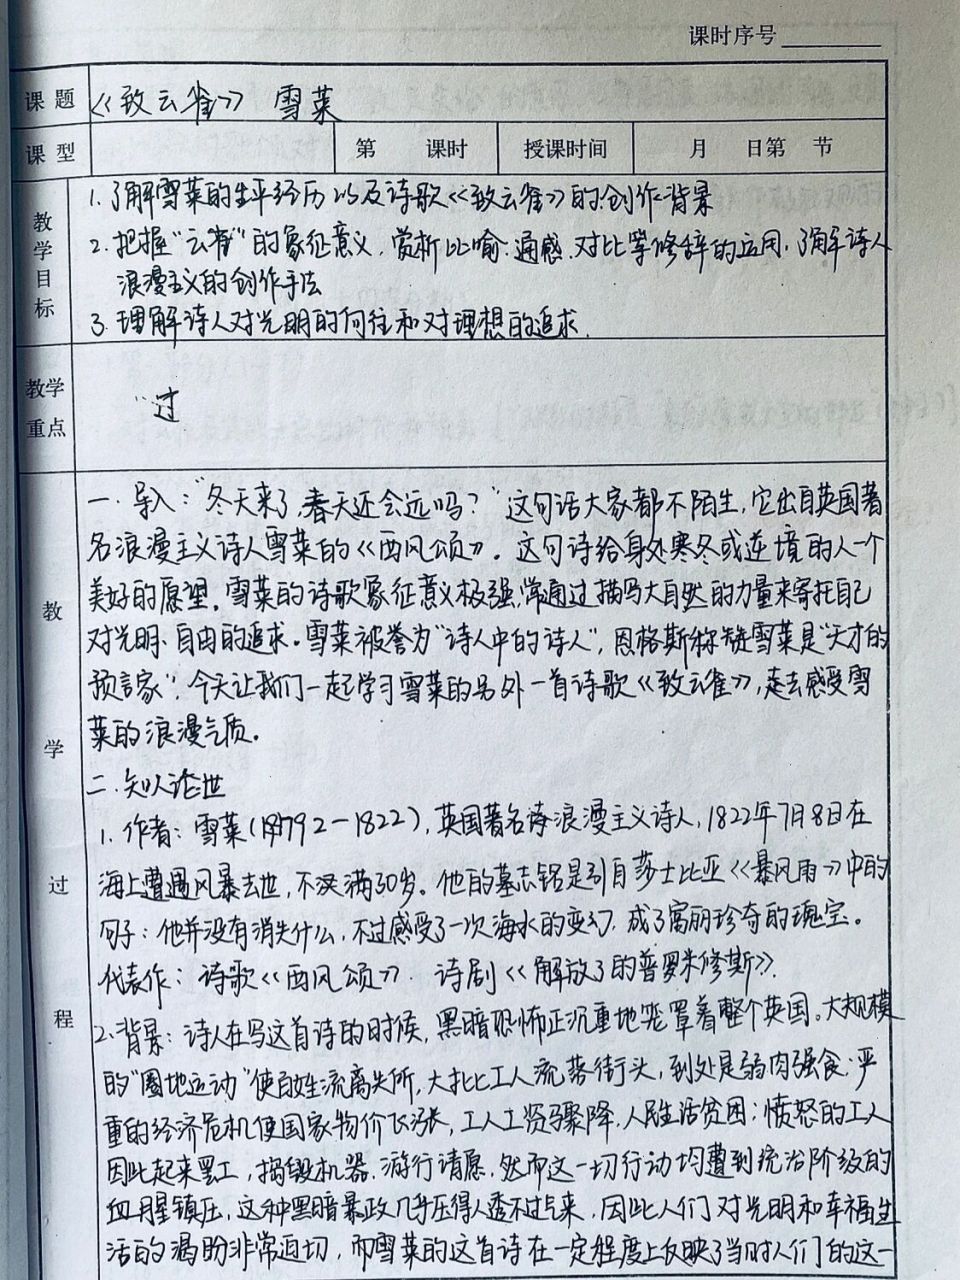 课时序号
课题 《致云雀》 雪莱
课型 第 课时 授课时间 月 日第 节
教学目标
1. 了解雪莱的生平经历以及诗歌《致云雀》的创作背景
2. 把握“云雀”的象征意义，赏析比喻、通感、对比等修辞的运用，了解诗人
浪漫主义的创作手法
3. 理解诗人对光明的向往和对理想的追求.
教学重点
过
教学过程
一. 导入：“冬天来了，春天还会远吗？”这句话大家都不陌生，它出自英国著
名浪漫主义诗人雪莱的《西风颂》。这句诗给身处寒冬或逆境的人一个
美好的愿望。雪莱的诗歌象征意义极强，常通过描写大自然的力量来寄托自己
对光明、自由的追求。雪莱被誉为“诗人中的诗人”，恩格斯称赞雪莱是“天才的
预言家”。今天让我们一起学习雪莱的另外一首诗歌《致云雀》，走去感受雪
莱的浪漫气质。
二. 知人论世
1. 作者：雪莱(1792-1822)，英国著名浪漫主义诗人，1822年7月8日在
海上遭遇风暴去世，不满30岁。他的墓志铭是引自莎士比亚《暴风雨》中的
句子：他并没有消失什么，不过感受了一次海水的变幻，成了富丽珍奇的瑰宝。
代表作：诗歌《西风颂》. 诗剧《解放了的普罗米修斯》.
2. 背景：诗人在写这首诗的时候，黑暗恐怖正沉重地笼罩着整个英国。大规模
的“圈地运动”使百姓流离失所，大批工人流落街头，到处是弱肉强食；严
重的经济危机使国家物价飞涨，工人工资骤降，人民生活贫困；愤怒的工人
因此起来罢工，捣毁机器，游行请愿，然而这一切行动均遭到统治阶级的
血腥镇压，这种黑暗暴政几乎压得人透不过气来，因此人们对光明和幸福生
活的渴盼非常迫切，而雪莱的这首诗在一定程度上反映了当时人们的这一